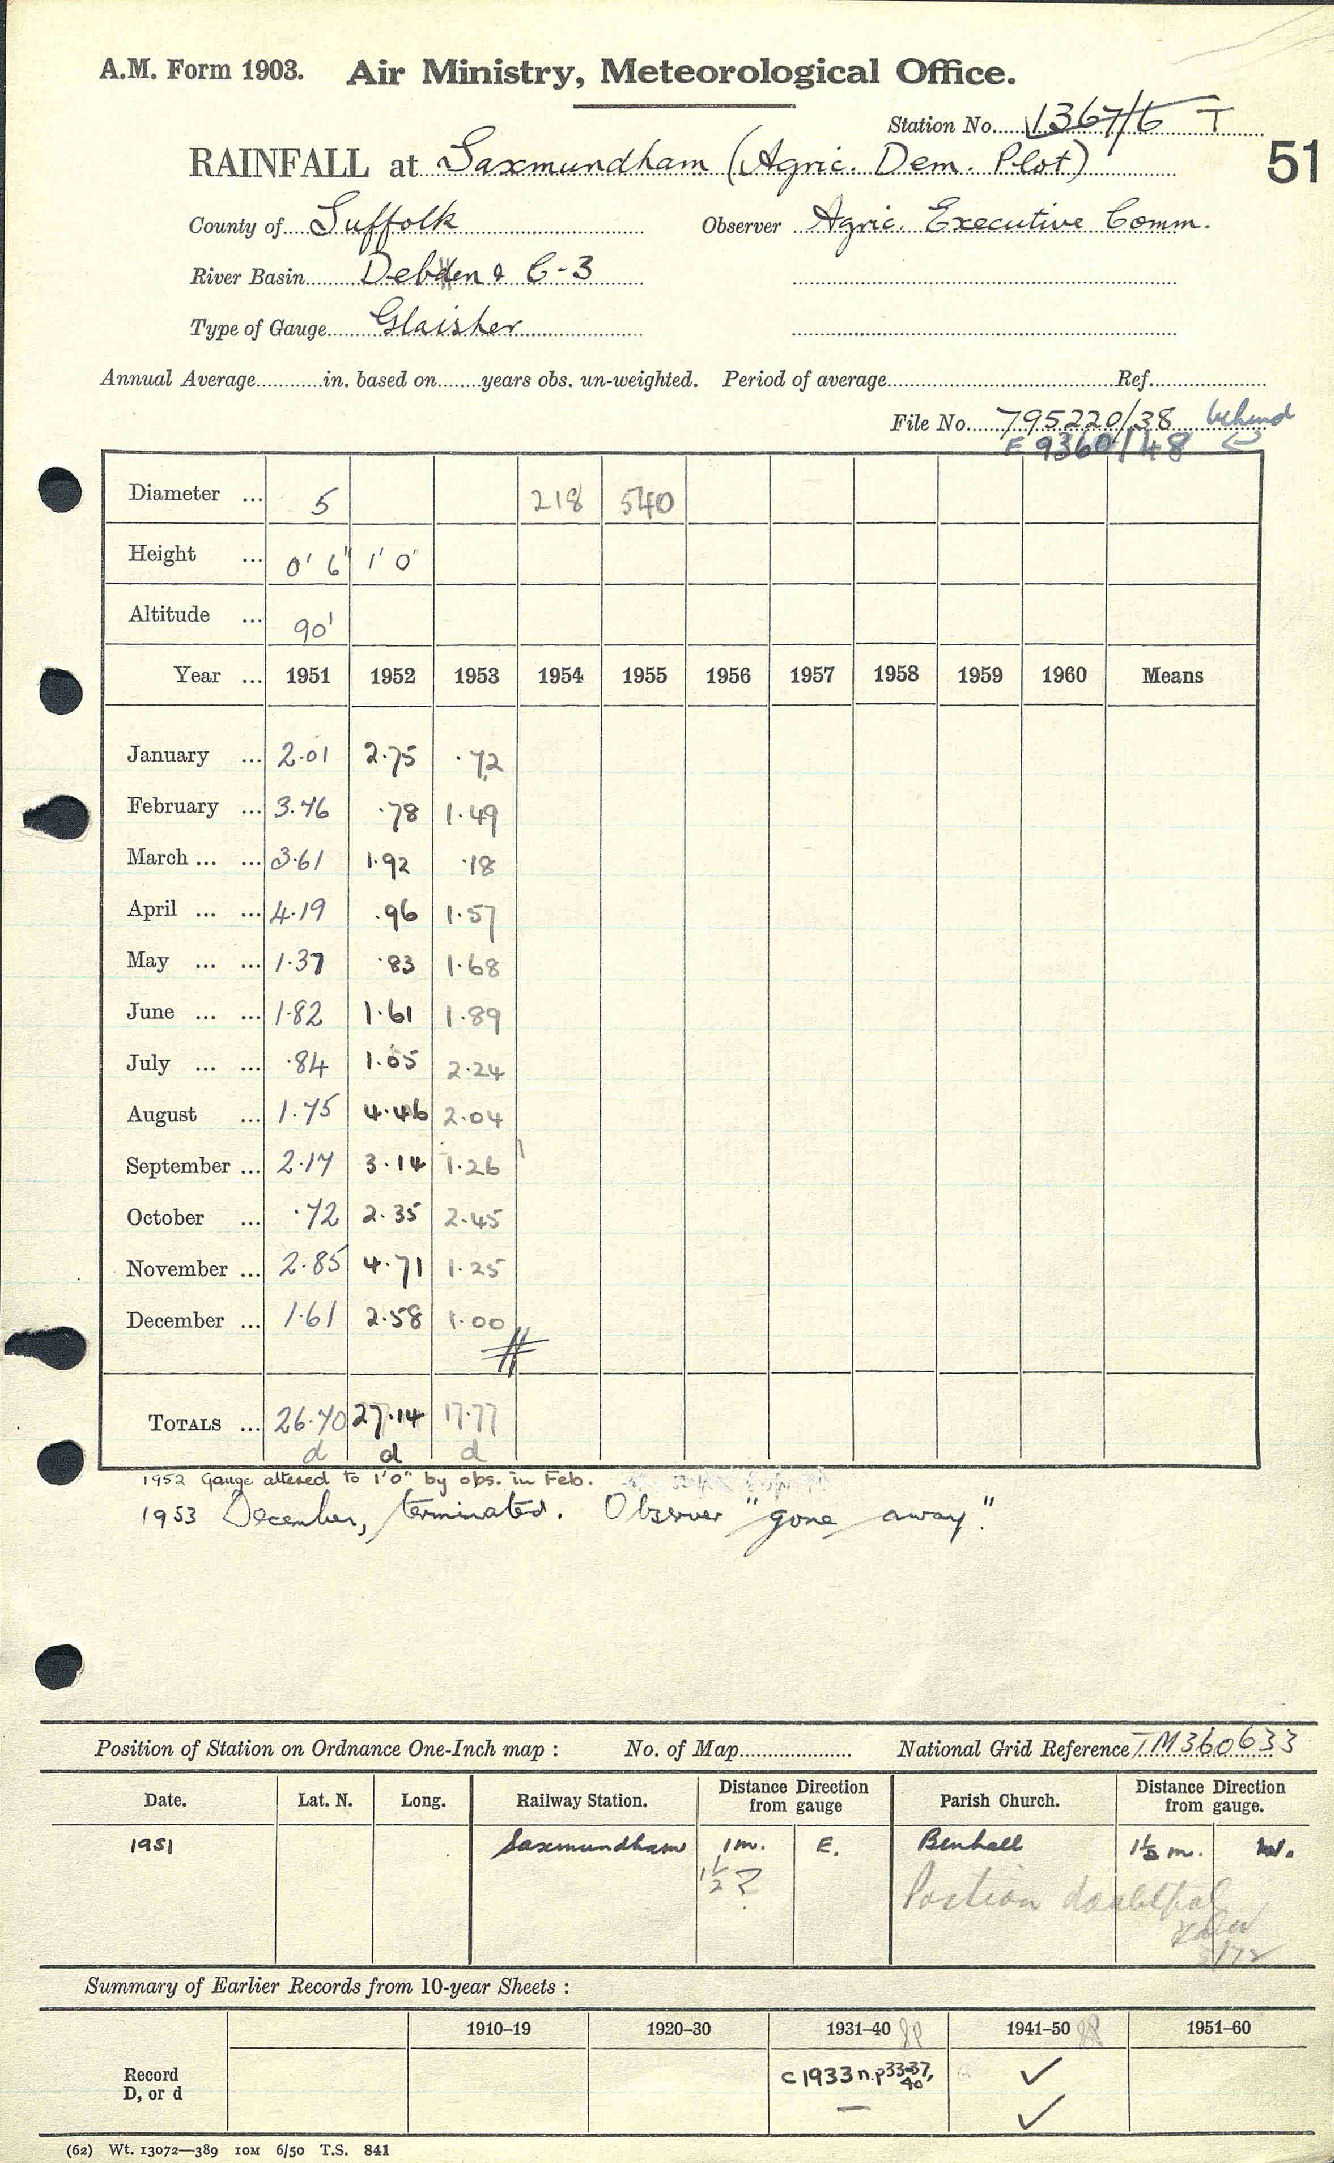 A.M. Form 1903. Air Ministry, Meteorological Office.
Station No. 1367/6 T
RAINFALL at Saxmundham (Agric. Dem. Plot) 51
County of Suffolk Observer Agric. Executive Comm.
River Basin Deben & C-3
Type of Gauge Glaisher
Annual Average in. based on years obs. un-weighted. Period of average Ref.
File No. 795220/38 behind
F 9360/48
Diameter ... 5 218 540
Height ... 0' 6" 1' 0"
Altitude ... 90'
Year ... 1951 1952 1953 1954 1955 1956 1957 1958 1959 1960 Means
January ... 2.01 2.75 .72
February ... 3.76 .78 1.49
March ... ... 3.61 1.92 .18
April ... ... 4.19 .96 1.57
May ... ... 1.37 .83 1.68
June ... ... 1.82 1.61 1.89
July ... ... .84 1.05 2.24
August ... 1.75 4.46 2.04
September ... 2.17 3.14 1.26
October ... .72 2.35 2.45
November ... 2.85 4.71 1.25
December ... 1.61 2.58 1.00
TOTALS ... 26.70 27.14 17.77
d d d
1952 Gauge altered to 1'0" by obs. in Feb.
1953 December, terminated. Observer "gone away"
Position of Station on Ordnance One-Inch map : No. of Map National Grid Reference TM360633
Date. Lat. N. Long. Railway Station. Distance Direction from gauge Parish Church. Distance Direction from gauge.
1951 Saxmundham 1 m. E. Benhall 1½ m. W.
1½ ?
Position doubtful
5/72
Summary of Earlier Records from 10-year Sheets :
1910–19 1920–30 1931–40 1941–50 1951–60
Record
D, or d
c 1933 n.p 33-37, 40 ✓
— ✓
(62) Wt. 13072—389 10M 6/50 T.S. 841